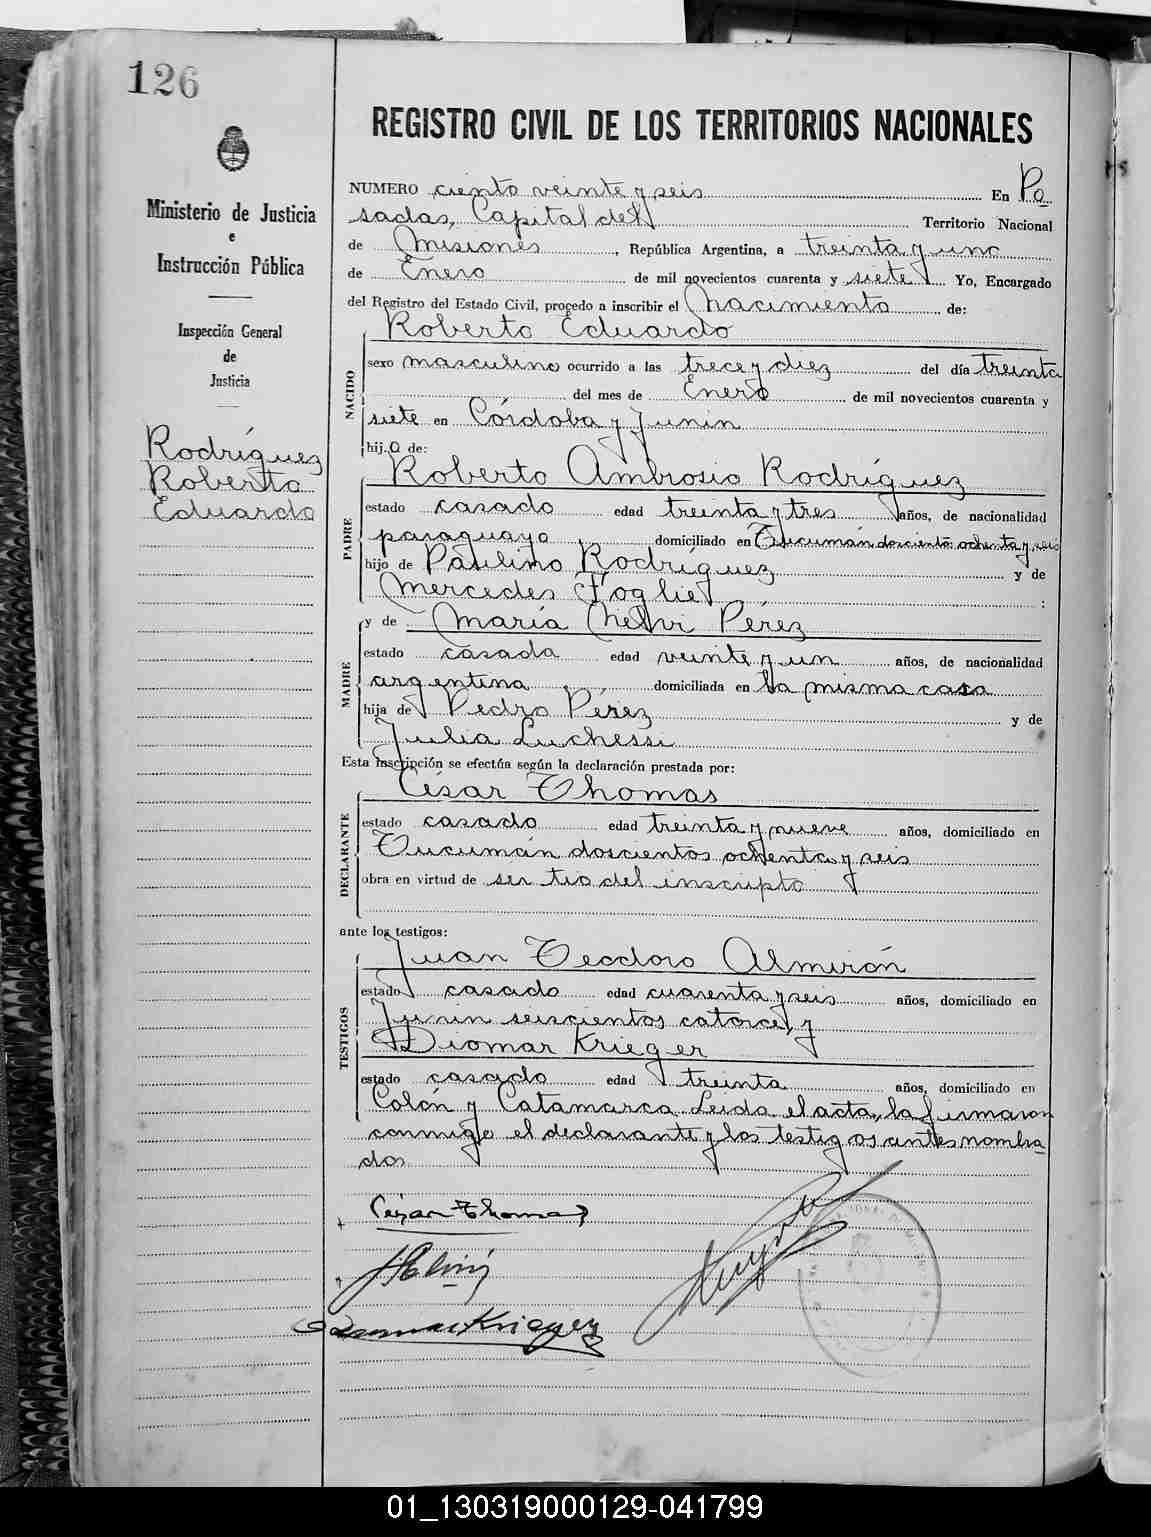 126
Ministerio de Justicia
e
Instrucción Pública
Inspección General
de
Justicia
Rodríguez
Roberto
Eduardo
REGISTRO CIVIL DE LOS TERRITORIOS NACIONALES
NUMERO ciento veinte y seis En Po
sadas, Capital del Territorio Nacional
de Misiones, República Argentina, a treinta y uno
de Enero de mil novecientos cuarenta y siete Yo, Encargado
del Registro del Estado Civil, procedo a inscribir el Nacimiento de:
NACIDO
Roberto Eduardo
sexo masculino ocurrido a las trece y diez del día treinta
del mes de Enero de mil novecientos cuarenta y
siete en Córdoba y Junin
hij.o de:
PADRE
Roberto Ambrosio Rodríguez
estado casado edad treinta y tres años, de nacionalidad
paraguayo domiciliado en Tucumán doscientos ochenta y seis
hijo de Paulino Rodríguez y de
Mercedes Foglie :
MADRE
y de María Nelvi Pérez
estado casada edad veinte y un años, de nacionalidad
argentina domiciliada en la misma casa
hija de Pedro Pérez y de
Julia Luchessi
Esta inscripción se efectúa según la declaración prestada por:
DECLARANTE
César Thomas
estado casado edad treinta y nueve años, domiciliado en
Tucumán doscientos ochenta y seis
obra en virtud de ser tio del inscripto
ante los testigos:
TESTIGOS
Juan Teodoro Almirón
estado casado edad cuarenta y seis años, domiciliado en
Junin seiscientos catorce, y
Diomar Krieger
estado casado edad treinta años, domiciliado en
Colón y Catamarca Leida el acta, la firmaron
conmigo el declarante y los testigos antes nombra
dos
César Thomas
Krieger
01_130319000129-041799